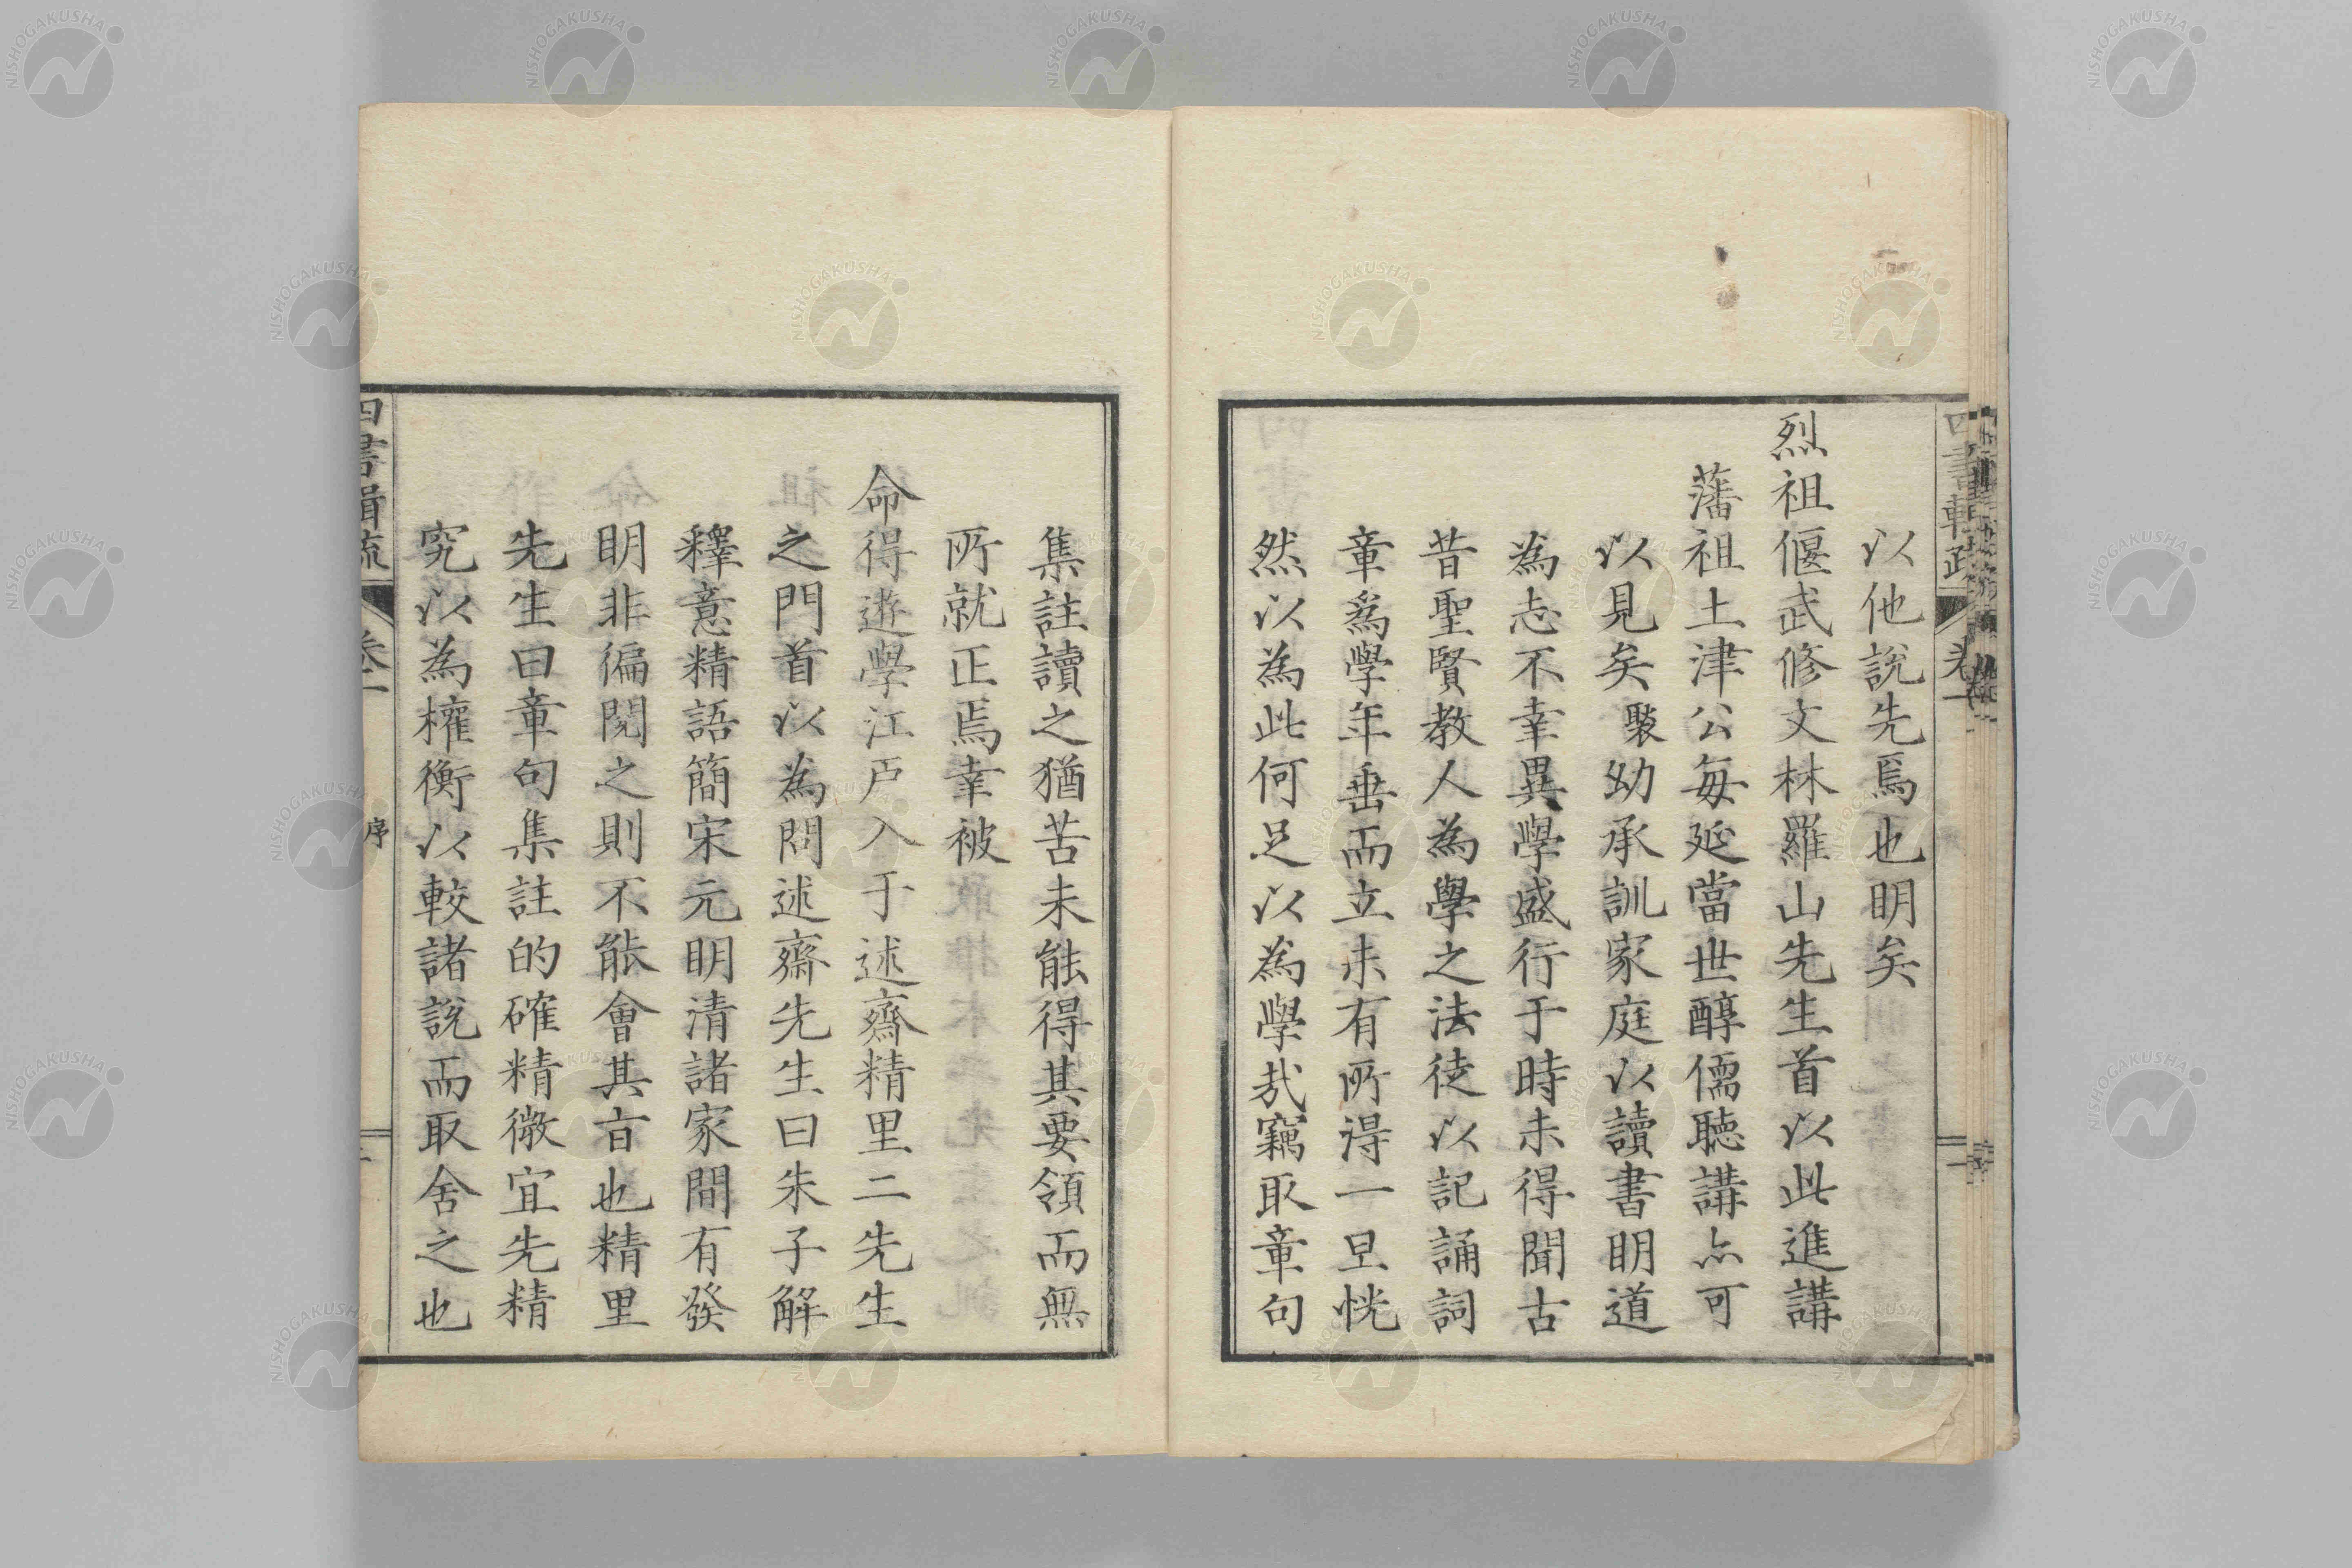 以他說先焉也明矣
烈祖偃武修文林羅山先生首以此進講
藩祖土津公每延當世醇儒聽講亦可
以見矣褧幼承訓家庭以讀書明道
為志不幸異學盛行于時未得聞古
昔聖賢教人為學之法徒以記誦詞
章爲學年垂而立未有所得一旦恍
然以為此何足以為學哉竊取章句
集註讀之猶苦未能得其要領而無
所就正焉幸被
命得遊學江戶入于述齋精里二先生
之門首以為問述齋先生曰朱子解
釋意精語簡宋元明清諸家間有發
明非徧閱之則不能會其旨也精里
先生曰章句集註的確精微宜先精
究以為權衡以較諸說而取舍之也
四書輯疏
卷一
序
NISHOGAKUSHA